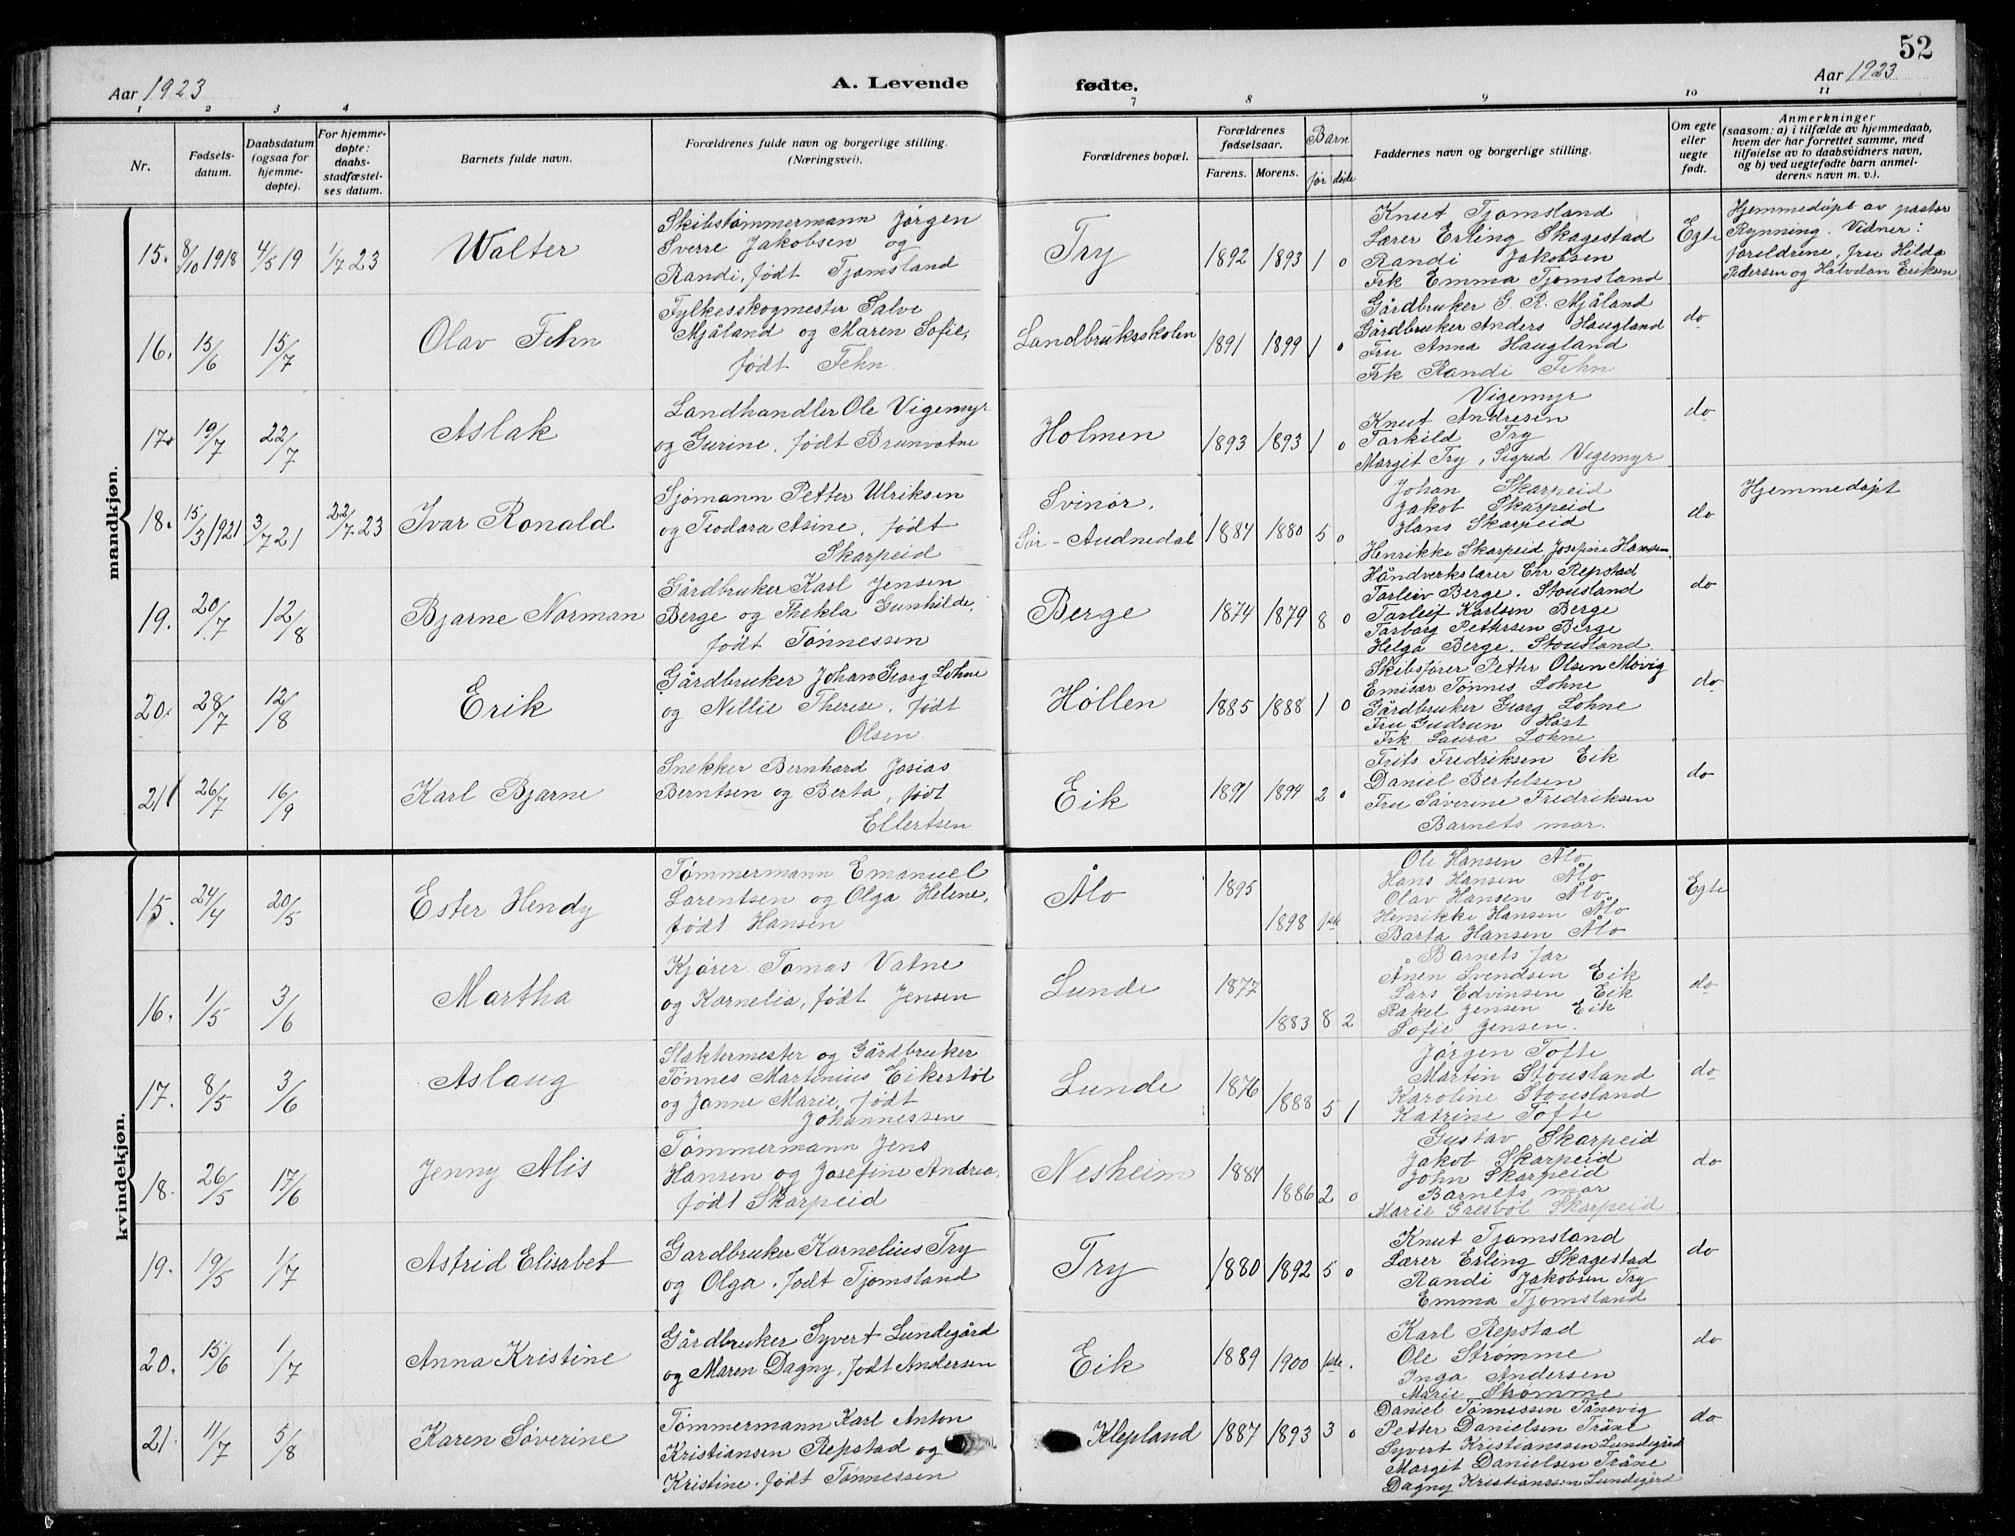 52
Aar 1923
A. Levende fødte.
Aar 1923
1 2 3 4 7 8 9 10 11
Nr.
Fødsels-
datum.
Daabsdatum
(ogsaa for
hjemme-
døpte).
For hjemme-
døpte:
daabs-
stadfæstel-
ses datum.
Barnets fulde navn.
Forældrenes fulde navn og borgerlige stilling.
(Næringsvei).
Forældrenes bopæl.
Forældrenes
fødselsaar.
Farens. Morens.
Barn
før døde
Faddernes navn og borgerlige stilling.
Om egte
eller
uegte
født.
Anmerkninger
(saasom: a) i tilfælde av hjemmedaab,
hvem der har forrettet samme, med
tilføielse av to daabsvidners navn,
og b) ved uegtefødte barn anmel-
derens navn m. v.).
mandkjøn.
15. 8/10 1918 4/5 19 1/7 23 Walter
Skibstømmermann Jørgen
Sverre Jakobsen og
Randi, født Tjomsland
Try 1892 1893 1 0
Knut Tjomsland
Lærer Erling Skagestad
Randi Jakobsen
Frk Emma Tjomsland
Egte
Hjemmedøpt av pastor
Rynning. Vidner:
foreldrene, fru Hilda
Pedersen og Halvdan Eriksen
16. 15/6 15/7 Olav Fehn
Fylkesskogmester Salve
Mjåland og Maren Sofie,
født Fehn
Landbruksskolen 1891 1899 1 0
Gårdbruker G. R. Mjåland
Gårdbruker Anders Haugland
Fru Anna Haugland
Frk Randi Fehn
do
17. 19/7 22/7 Aslak
Landhandler Ole Vigemyr
og Gurine, født Brunvatne
Holmen 1893 1893 1 0
Vigemyr
Knut Andresen
Tarkild Try
Margit Try, Sigred Vigemyr
do
18. 15/3 1921 3/7 21 22/7 23 Ivar Ronald
Sjømann Petter Ulriksen
og Teodara Asine, født
Skarpeid
Svinør,
Sør-Audnedal 1884 1880 5 0
Johan Skarpeid
Jakob Skarpeid
Hans Skarpeid
Henrikke Skarpeid, Josefine Hansen
do
Hjemmedøpt
19. 20/7 12/8 Bjarne Norman
Gårdbruker Karl Jensen
Berge og Thekla Gunhilde,
født Tønnessen
Berge 1874 1879 8 0
Håndverkslærer Chr Repstad
Tarleiv Berge. Stousland
Tarleif Karlsen Berge
Tarborg Pettersen Berge
Helga Berge. Stousland
do
20. 28/7 12/8 Erik
Gårdbruker Johan Georg Lohne
og Nillie Therese, født
Olsen
Høllen 1885 1888 1 0
Skibsfører Petter Olsen Møvig
Emisær Tønnes Lohne
Gårdbruker Georg Lohne
Fru Gudrun Høst
Frk Laura Lohne
do
21 26/7 16/9 Karl Bjarne
Snekker Bernhard Josias
Berntsen og Berta, født
Ellertsen
Eik 1891 1894 2 0
Frits Fredriksen Eik
Daniel Bertelsen
Fru Søverine Fredriksen
Barnets mor.
do
kvindekjøn.
15. 24/4 20/5 Ester Hendy
Tømmermann Emanuel
Larentsen og Olga Helene,
født Hansen
Ålo 1895 1898 1ste
Ole Hansen Ålo
Hans Hansen Ålo
Olav Hansen Ålo
Henrikke Hansen Ålo
Barta Hansen Ålo
Egte
16. 1/5 3/6 Martha
Kjører Tomas Vatne
og Karnelia, født Jensen
Lunde 1877 1883 8 2
Barnets far
Ånen Svendsen Eik
Lars Edvinsen Eik
Rakel Jensen Eik
Sofie Jensen.
do
17. 8/5 3/6 Aslaug
Slaktermester og Gårdbruker
Tønnes Martinius Eikertøl
og Janne Marie, født
Johannessen
Lunde 1876 1888 5 1
Jørgen Tofte
Martin Stousland
Karoline Stousland
Katrine Tofte
do
18. 26/5 17/6 Jenny Alis
Tømmermann Jens
Hansen og Josefine Andrea,
født Skarpeid
Nesheim 1884 1886 2 0
Gustav Skarpeid
Jakob Skarpeid
John Skarpeid
Barnets mor
Marie Gresbøl Skarpeid
do
19. 19/5 1/7 Astrid Elisabet
Gardbruker Kornelius Try
og Olga, født Tjomsland
Try 1880 1892 5 0
Knut Tjomsland
Lærer Erling Skagestad
Randi Jakobsen Try
Emma Tjomsland
do
20. 15/6 1/7 Anna Kristine
Gårdbruker Syvert Lundegård
og Maren Dagny, født Andersen
Eik 1889 1900 1ste.
Karl Repstad
Ole Strømme
Inga Andersen
Marie Strømme
do
21 11/7 5/8 Karen Søverine
Tømmermann Karl Anton
Kristiansen Repstad og
Kristine. født Tønnessen
Klepland 1887 1893 3 0
Daniel Tønnessen Tånevig
Petter Danielsen Tråne
Syvert Kristianssen Lundegård
Margit Danielsen Tråne
Dagny Kristianssen Lundegård
do